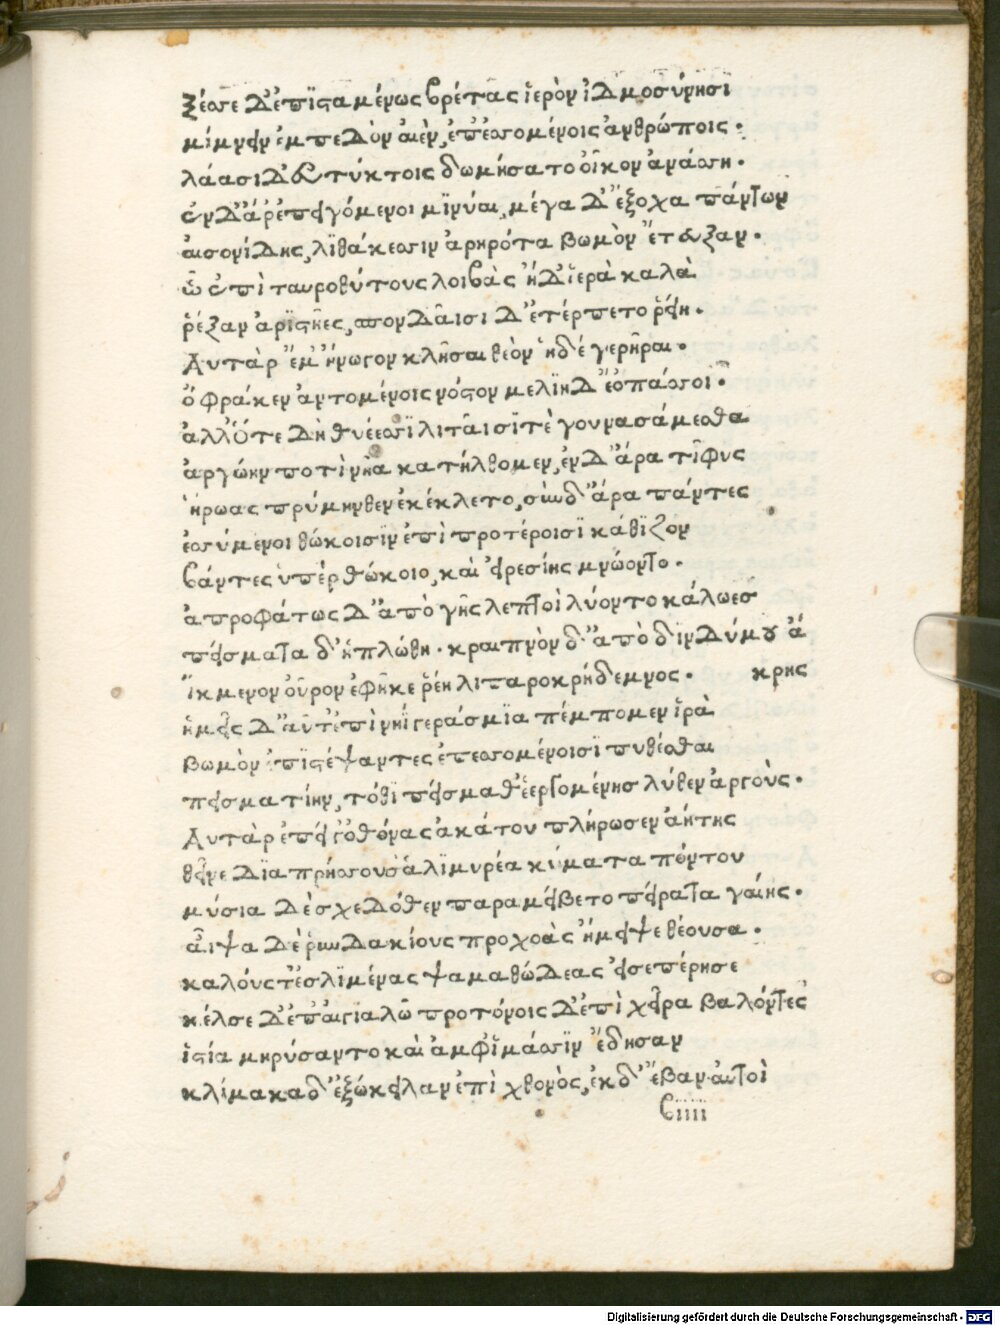 ξέσσε δ' ἐπϊσταμένως βρέτας ἱερὸν ἰδμοσύνησϊ
μίμνειν ἔμπεδον αἰὲν, ἐπ' ἐσσομένοις ἀνθρώποις.
λάασι δ' εὐτύκτοις δωμήσατο οἶκον ἀνάσση.
ἐν δ' ἄρ' ἐπειγόμενοι μϊνύαι, μέγα δ' ἔξοχα πάντων
αἰσονίδης, λϊθάκεσσιν ἀρηρότα βωμὸν ἔτευξαν.
ὧ ἐπὶ ταυροθύτους λοιβὰς ἠδ' ἱερὰ καλὰ
ῥέξαν ἀρϊστῆες, σπονδαῖσι δ' ἐτέρπετο ῥείη.
Αυτὰρ ἔμ' ἤνωγον κλῆσαι θεὸν ἠδὲ γερῆραι.
ὄφρα κεν ἀντομένοις νόστον μελϊηδ' ἐ' ὀπάσσοι.
ἀλλ' ὅτε δὴ θυέεσσϊ λιταῖσί τε γουνασάμεσθα
ἀργώην ποτὶ νῆα κατήλθομεν, ἐν δ' ἄρα τῖφυς
ἥρωας πρύμνηθεν ἐκέκλετο, σὺν δ' ἄρα πάντες
ἐσσύμενοι θώκοισϊν ἐπὶ προτέροισϊ κάθϊζον
βάντες ὑπὲρ θώκοιο, καὶ εἰρεσίης μνώοντο.
ἀπροφάτως δ' ἀπὸ γῆς λεπτοὶ λύοντο κάλωες
πείσματα δ' ἡπλώθη. κραιπνὸν δ' ἀπὸ δινδύμου ἄ
κρης
ἴκμενον οὖρον ἐφῆκε ῥέη λιπαροκρήδεμνος.
ἡμεῖς δ' αὖτ' ἐπὶ νηῒ γεράσμϊα πέμπομεν ἱρὰ
βωμὸν ἐπϊστέψαντες ἐπεσσομένοισϊ πυθέσθαι
πεισματίην, τόθϊ πείσμαθ' ἐεργομένης λύθεν ἀργοῦς.
Αυτὰρ ἐπεί ῥ' ὀθόνας ἀκάτου πλήρωσεν ἀήτης
θεῖνε δϊαπρήσσουσ' ἁλϊμυρέα κύματα πόντου
μύσια δὲ σχεδόθεν παραμείβετο πείρατα γαίης.
αἶψα δὲ ῥυνδακίους προχοὰς ἤμειψε θέουσα.
καλούς τ' ἐς λϊμένας ψαμαθώδεας εἰσεπέρησε
κέλσε δ' ἐπ' αἰγιαλῶ προτόνοις δ' ἐπὶ χεῖρα βαλόντες
ἱστία μηρύσαντο καὶ ἀμφ' ἱμάσσϊν ἔδησαν
κλίμακα δ' ἐξώκειλαν ἐπὶ χθονὸς, ἐκ δ' ἔβαν αὐτοὶ
βiiii
Digitalisierung gefördert durch die Deutsche Forschungsgemeinschaft - DFG